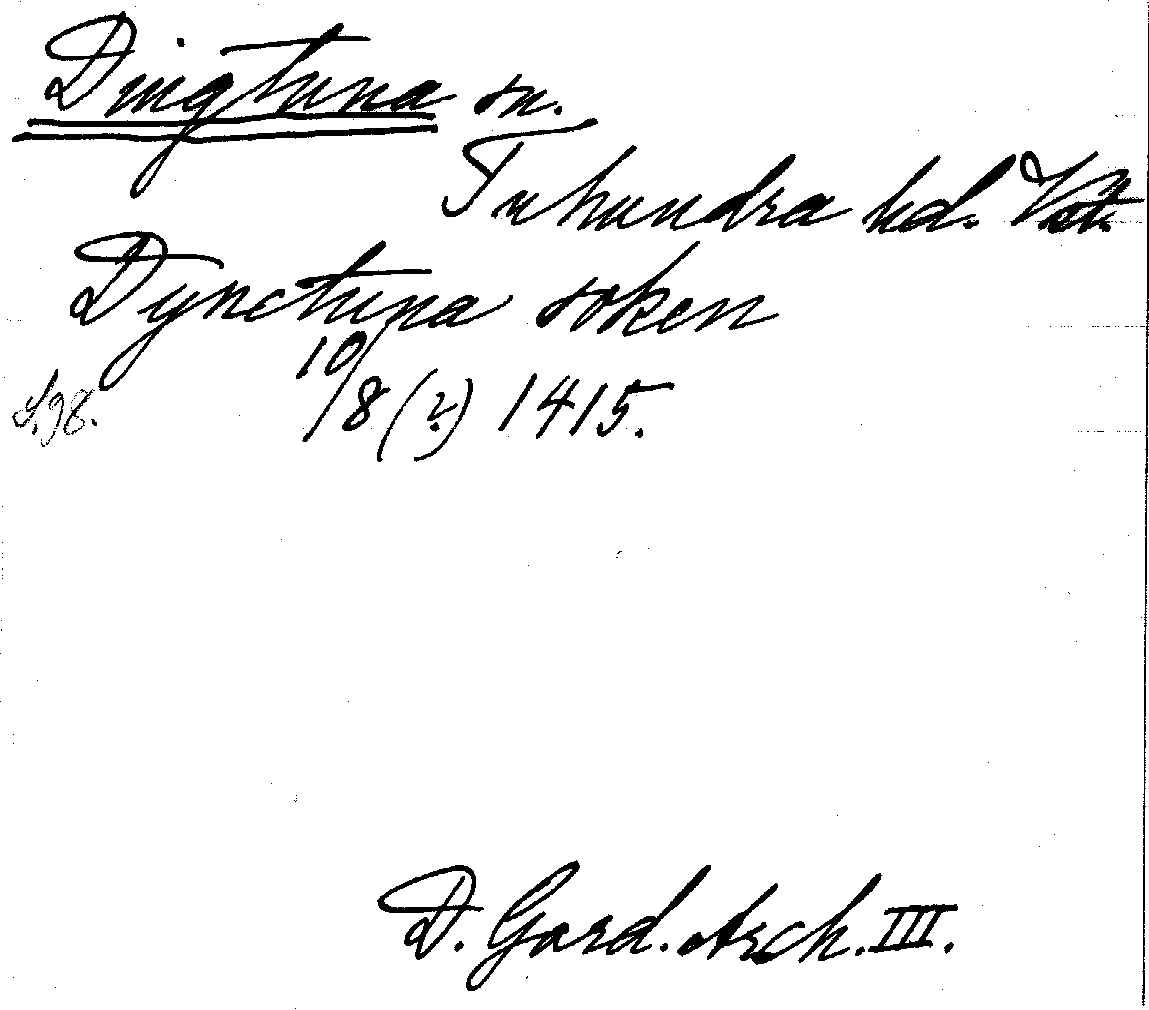 Dingtuna sn.
Tuhundra hd. Vstm.
Dynctuna soken
S. 98. 10/8 (?) 1415.
D. Gard. Arch. III.